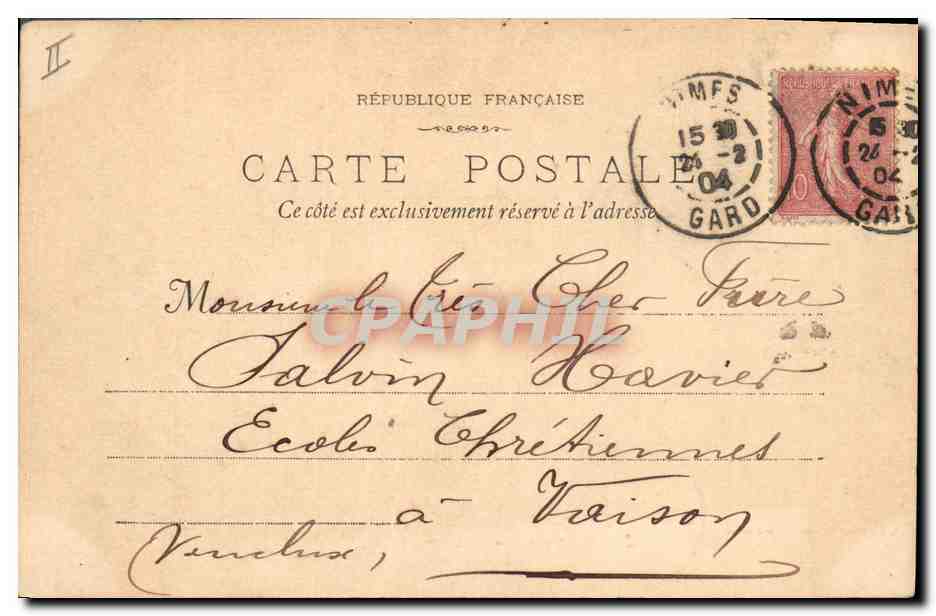 II
RÉPUBLIQUE FRANÇAISE
CARTE POSTALE
Ce côté est exclusivement réservé à l'adresse
NIMES
15 30
24 -2
04
GARD
NIM
15 30
24 -2
04
GARD
Monsieur le Très Cher Frère
CPAPHIL
Salvin Xavier
Ecoles Chrétiennes
à Vaison
Vaucluse,